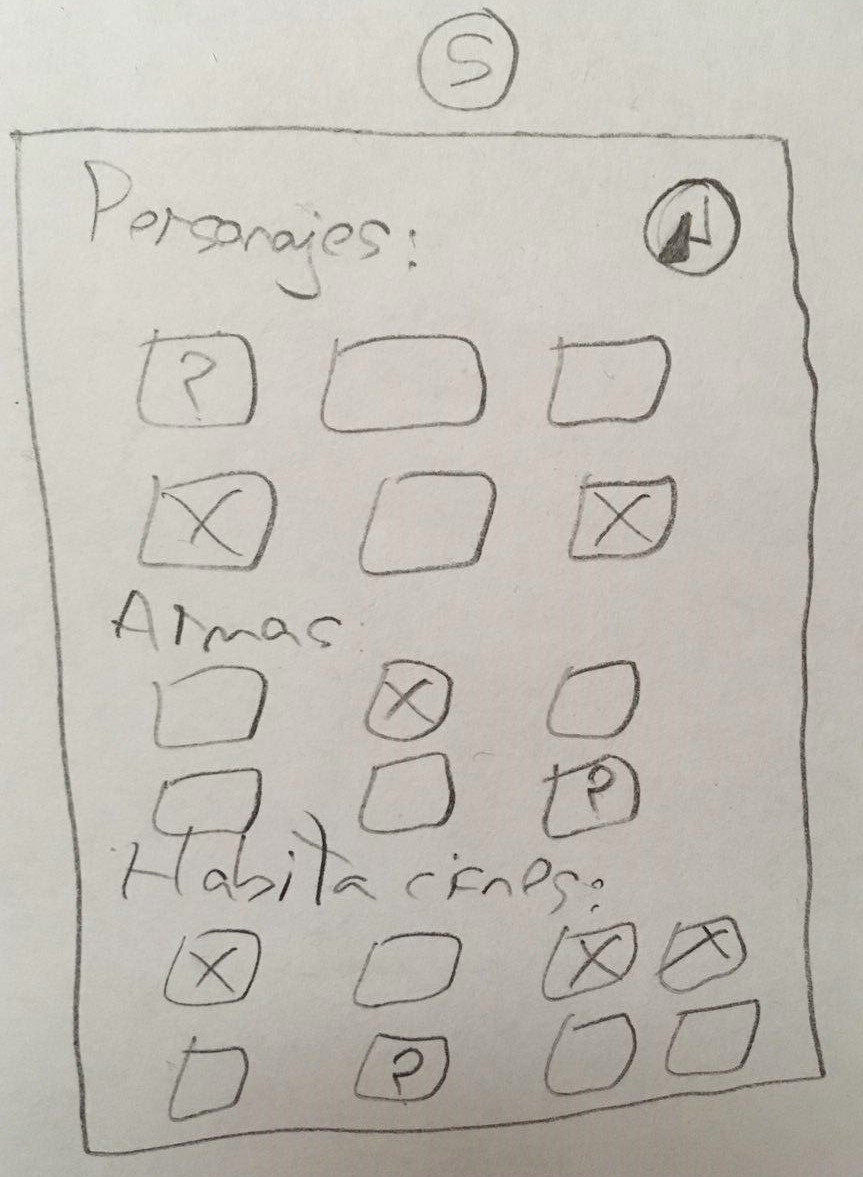 5
Personajes:
?
X X
Armas
X
?
Habitaciones:
X X X
?